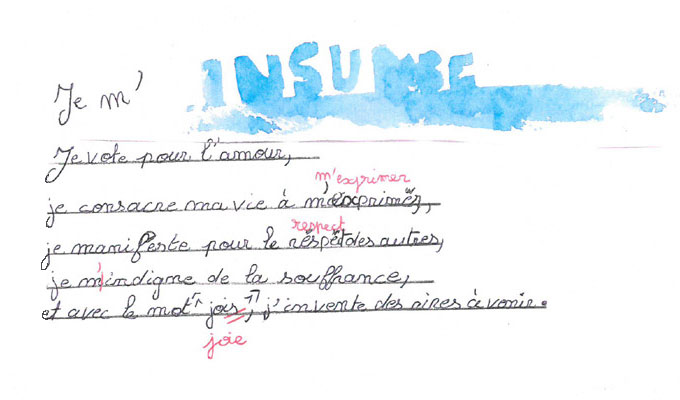 Je m' INSURGE
Je vote pour l'amour,
m'exprimer
je consacre ma vie à
respect
je manifeste pour le réspèt des autres,
je m'indigne de la souffrance,
et avec le mot "jois", j'invente des rires à venir.
joie